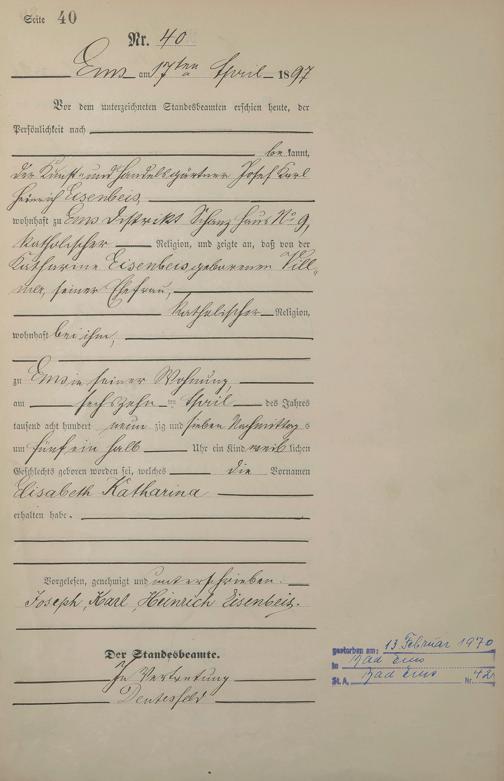 Seite 40
Nr. 40
Ems am 17ten April 1897
Vor dem unterzeichneten Standesbeamten erschien heute, der
Persönlichkeit nach
bekannt,
der Kunst- und Handelsgärtner Josef Karl
Heinrich Eisenbeis,
wohnhaft zu Ems Distrikt Schanz Haus No 9,
katholischer Religion, und zeigte an, daß von der
Katharine Eisenbeis geborenen Vill-
mer, seiner Ehefrau,
katholischer Religion,
wohnhaft bei ihm,
zu Ems in seiner Wohnung,
am sechszehnten April des Jahres
tausend acht hundert neunzig und sieben Nachmittags
um fünf ein halb Uhr ein Kind weiblichen
Geschlechts geboren worden sei, welches die Vornamen
Elisabeth Katharina
erhalten habe.
Vorgelesen, genehmigt und unterschrieben.
Joseph, Karl, Heinrich Eisenbeis.
Der Standesbeamte.
In Vertretung
gestorben am: 13 Februar 1970
in Bad Ems
St.A. Bad Ems Nr. 42